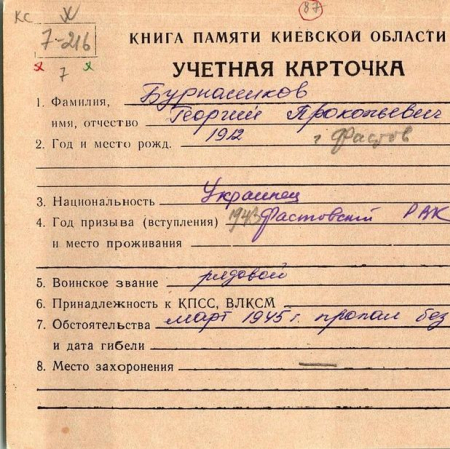 КС
87
7-216
7
КНИГА ПАМЯТИ КИЕВСКОЙ ОБЛАСТИ
УЧЕТНАЯ КАРТОЧКА
1. Фамилия, Бурнашников
имя, отчество Георгий Прокопьевич
2. Год и место рожд. 1912 г Фастов
3. Национальность Украинец
4. Год призыва (вступления) 1943 Фастовский РВК
и место проживания
5. Воинское звание рядовой
6. Принадлежность к КПСС, ВЛКСМ
7. Обстоятельства март 1945 г. пропал без
и дата гибели
8. Место захоронения —